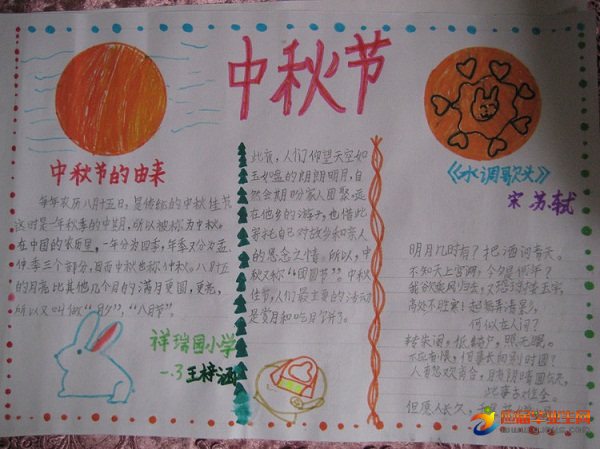 中秋节
中秋节的由来
每年农历八月十五日，是传统的中秋佳节
这时是一年秋季的中期，所以被称为中秋。
在中国的农历里，一年分为四季，每季又分为孟、
仲、季三个部分，因而中秋也称仲秋。八月十五
的月亮比其他几个月的满月更圆，更亮，
所以又叫做“月夕”，“八月节”。
祥瑞园小学
一.3 王梓涵
此夜，人们仰望天空如
玉如盘的朗朗明月，自
然会期盼家人团聚。远
在他乡的游子，也借此
寄托自己对故乡和亲人
的思念之情。所以，中
秋又称“团圆节”。中秋
佳节，人们最主要的活动
是赏月和吃月饼了。
《水调歌头》
宋 苏轼
明月几时有？把酒问青天。
不知天上宫阙，今夕是何年？
我欲乘风归去，又恐琼楼玉宇，
高处不胜寒！起舞弄清影，
何似在人间？
转朱阁，低绮户，照无眠。
不应有恨，何事长向别时圆？
人有悲欢离合，月有阴晴圆缺，
此事古难全。
但愿人长久，
应届毕业生网